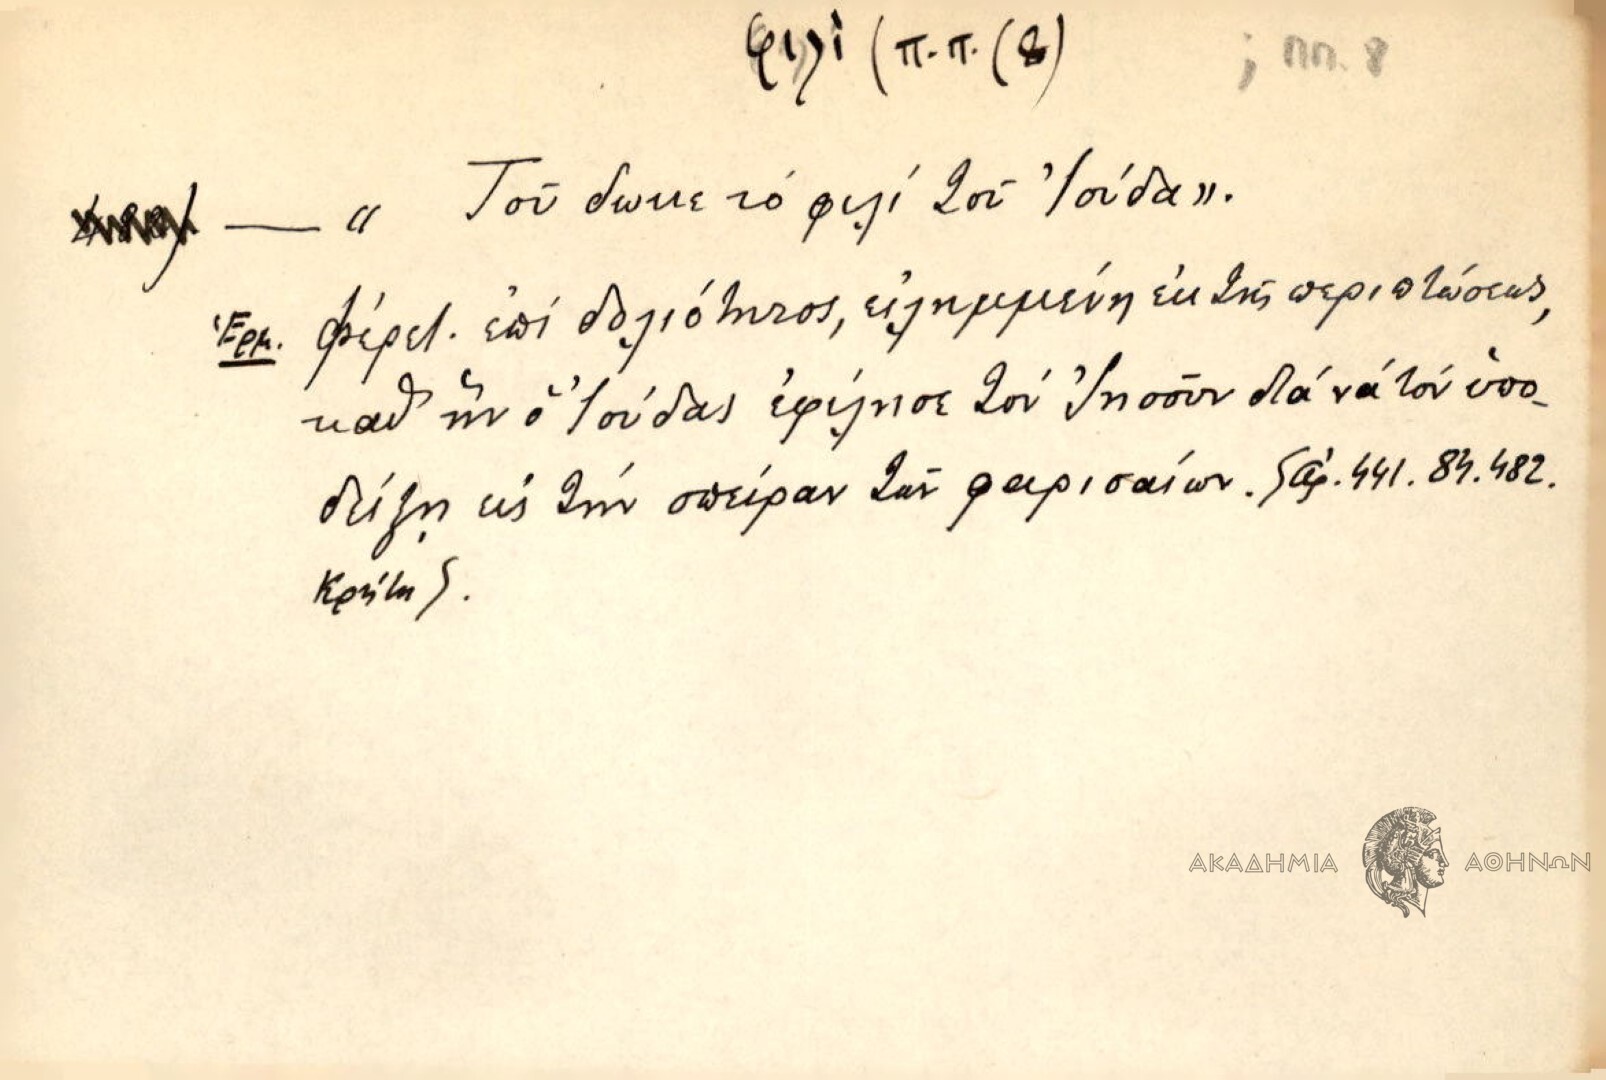 φιλί (π.π. (8)
; ππ. 8
— " Τοῦ δωκε τό φιλί τοῦ Ἰούδα".
Ἑρμ. Φέρετ. ἐπί δολιότητος, εἰλημμένη ἐκ τῆς περιπτώσεως,
καθ' ἥν ὁ Ἰούδας ἐφίλησε τόν Ἰησοῦν διά νά τόν ὑπο-
δείξῃ εἰς τήν σπεῖραν τῶν φαρισαίων. ἀρ. 441. 84. 482.
Κρήτη.
ΑΚΑΔΗΜΙΑ ΑΘΗΝΩΝ